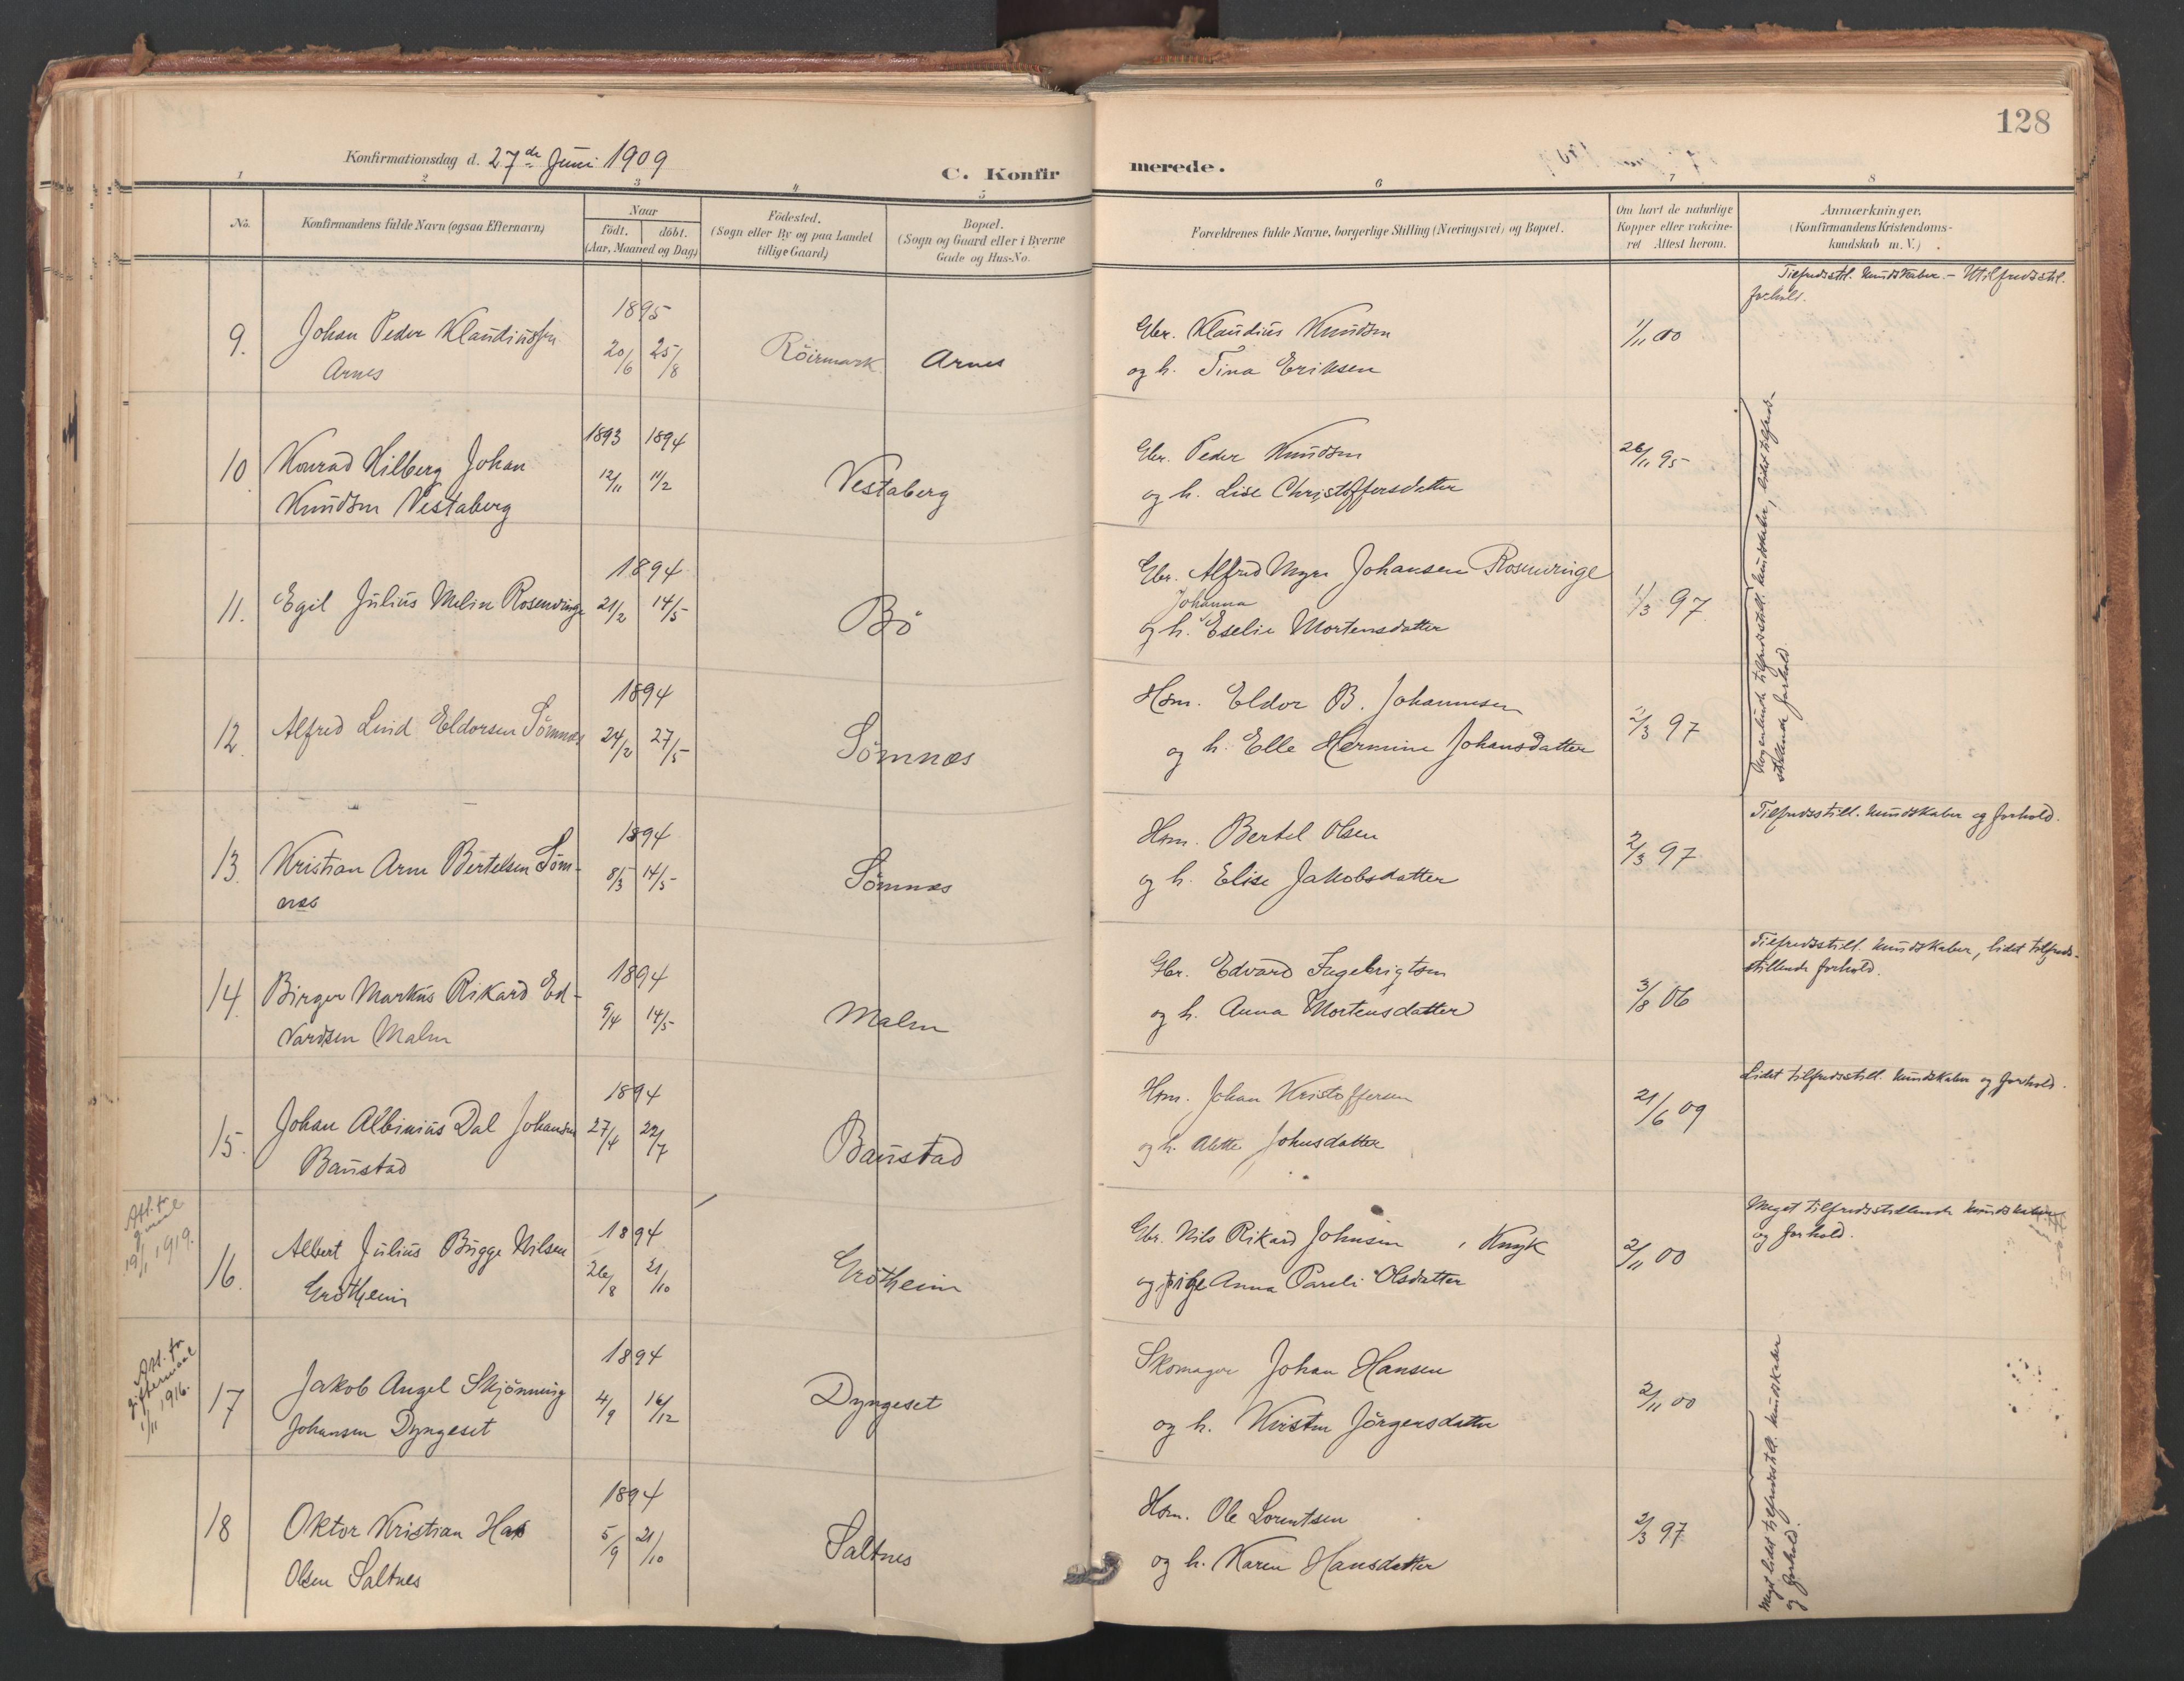 128
Konfirmationsdag d. 27de Juni 1909
C. Konfirmerede.
1 2 3 4 5 6 7 8
No.
Konfirmandens fulde Navn (ogsaa Efternavn)
Naar
Födt. döbt.
(Aar, Maaned og Dag)
Födested.
(Sogn eller By og paa Landet
tillige Gaard)
Bopæl.
(Sogn og Gaard eller i Byerne
Gade og Hus-No.
Forældrenes fulde Navne, borgerlige Stilling (Næringsvei) og Bopæl.
Om havt de naturlige
Kopper eller vakcine-
ret Attest herom.
Anmærkninger.
(Konfirmandens Kristendoms-
kundskab m. V.)
9. Johan Peder Klaudiussen
Arnes
1895
20/6 25/8
Röirmark Arnes
Gbr. Klaudius Knudsen
og h. Tina Eriksen
1/11 00
Tilfredsstl. kundskaber. - Utilfredsstl.
forhold.
10 Konrad Hilberg Johan
Knudsen Vestaberg
1893 1894
12/11 11/2
Vestaberg
Gbr. Peder Knudsen
og h. Lise Christoffersdatter
26/11 95
11. Egil Julius Melin Rosenvinge
1894
21/2 14/5
Bö
Gbr. Alfred Myre Johansen Rosenvinge
Johanna
og h. Eselie Mortensdatter
1/3 97
Nogenlunde tilfredsstill. kundskaber, lidet tilfreds-
stillende forhold.
12. Alfred Lind Eldorsen Sömnæs
1894
24/2 27/5
Sömnæs
Hsm. Eldor B. Johannesen
og h. Elle Hermine Johansdatter
2/3 97
13. Kristian Arne Bertelsen Söm-
næs
1894
8/3 14/5
Sömnæs
Hsm. Bertel Olsen
og h. Elise Jakobsdatter
2/3 97
Tilfredsstill. kundskaber og forhold.
14. Birger Markus Rikard Ed-
vardsen Malm
1894
9/4 14/5
Malm
Gbr. Edvard Ingebrigtsen
og h. Anna Mortensdatter
3/8 06
Tilfredsstill. kundskaber, lidet tilfreds-
stillende forhold.
15. Johan Albinius Dal Johansen
Baustad
1894
27/4 22/7
Baustad
Hsm. Johan Kristoffersen
og h. Alette Johnsdatter
21/6 09
Lidet tilfredsstill. kundskaber og forhold.
Att. for
19/1 1919.
16. Albert Julius Bugge Nilsen
Grötheim
1894
26/8 21/10
Grötheim
Gbr. Nils Rikard Johnsen, Knyk
og pige Anna Pareli Olsdatter
2/11 00
Meget tilfredsstillende kundskaber
og forhold.
Att. for
giftermaal
1/11 1916.
17 Jakob Angel Skjönning
Johansen Dyngeset
1894
4/9 16/12
Dyngeset
Skomager Johan Hansen
og h. Kirsten Jörgensdatter
2/11 00
Meget lidet tilfredsstill. kundskaber
og forhold.
18 Oktor Kristian Has
Olsen Saltnes
1894
5/9 21/10
Saltnes
Hsm. Ole Lorentsen
og h. Karen Hansdatter
2/3 97